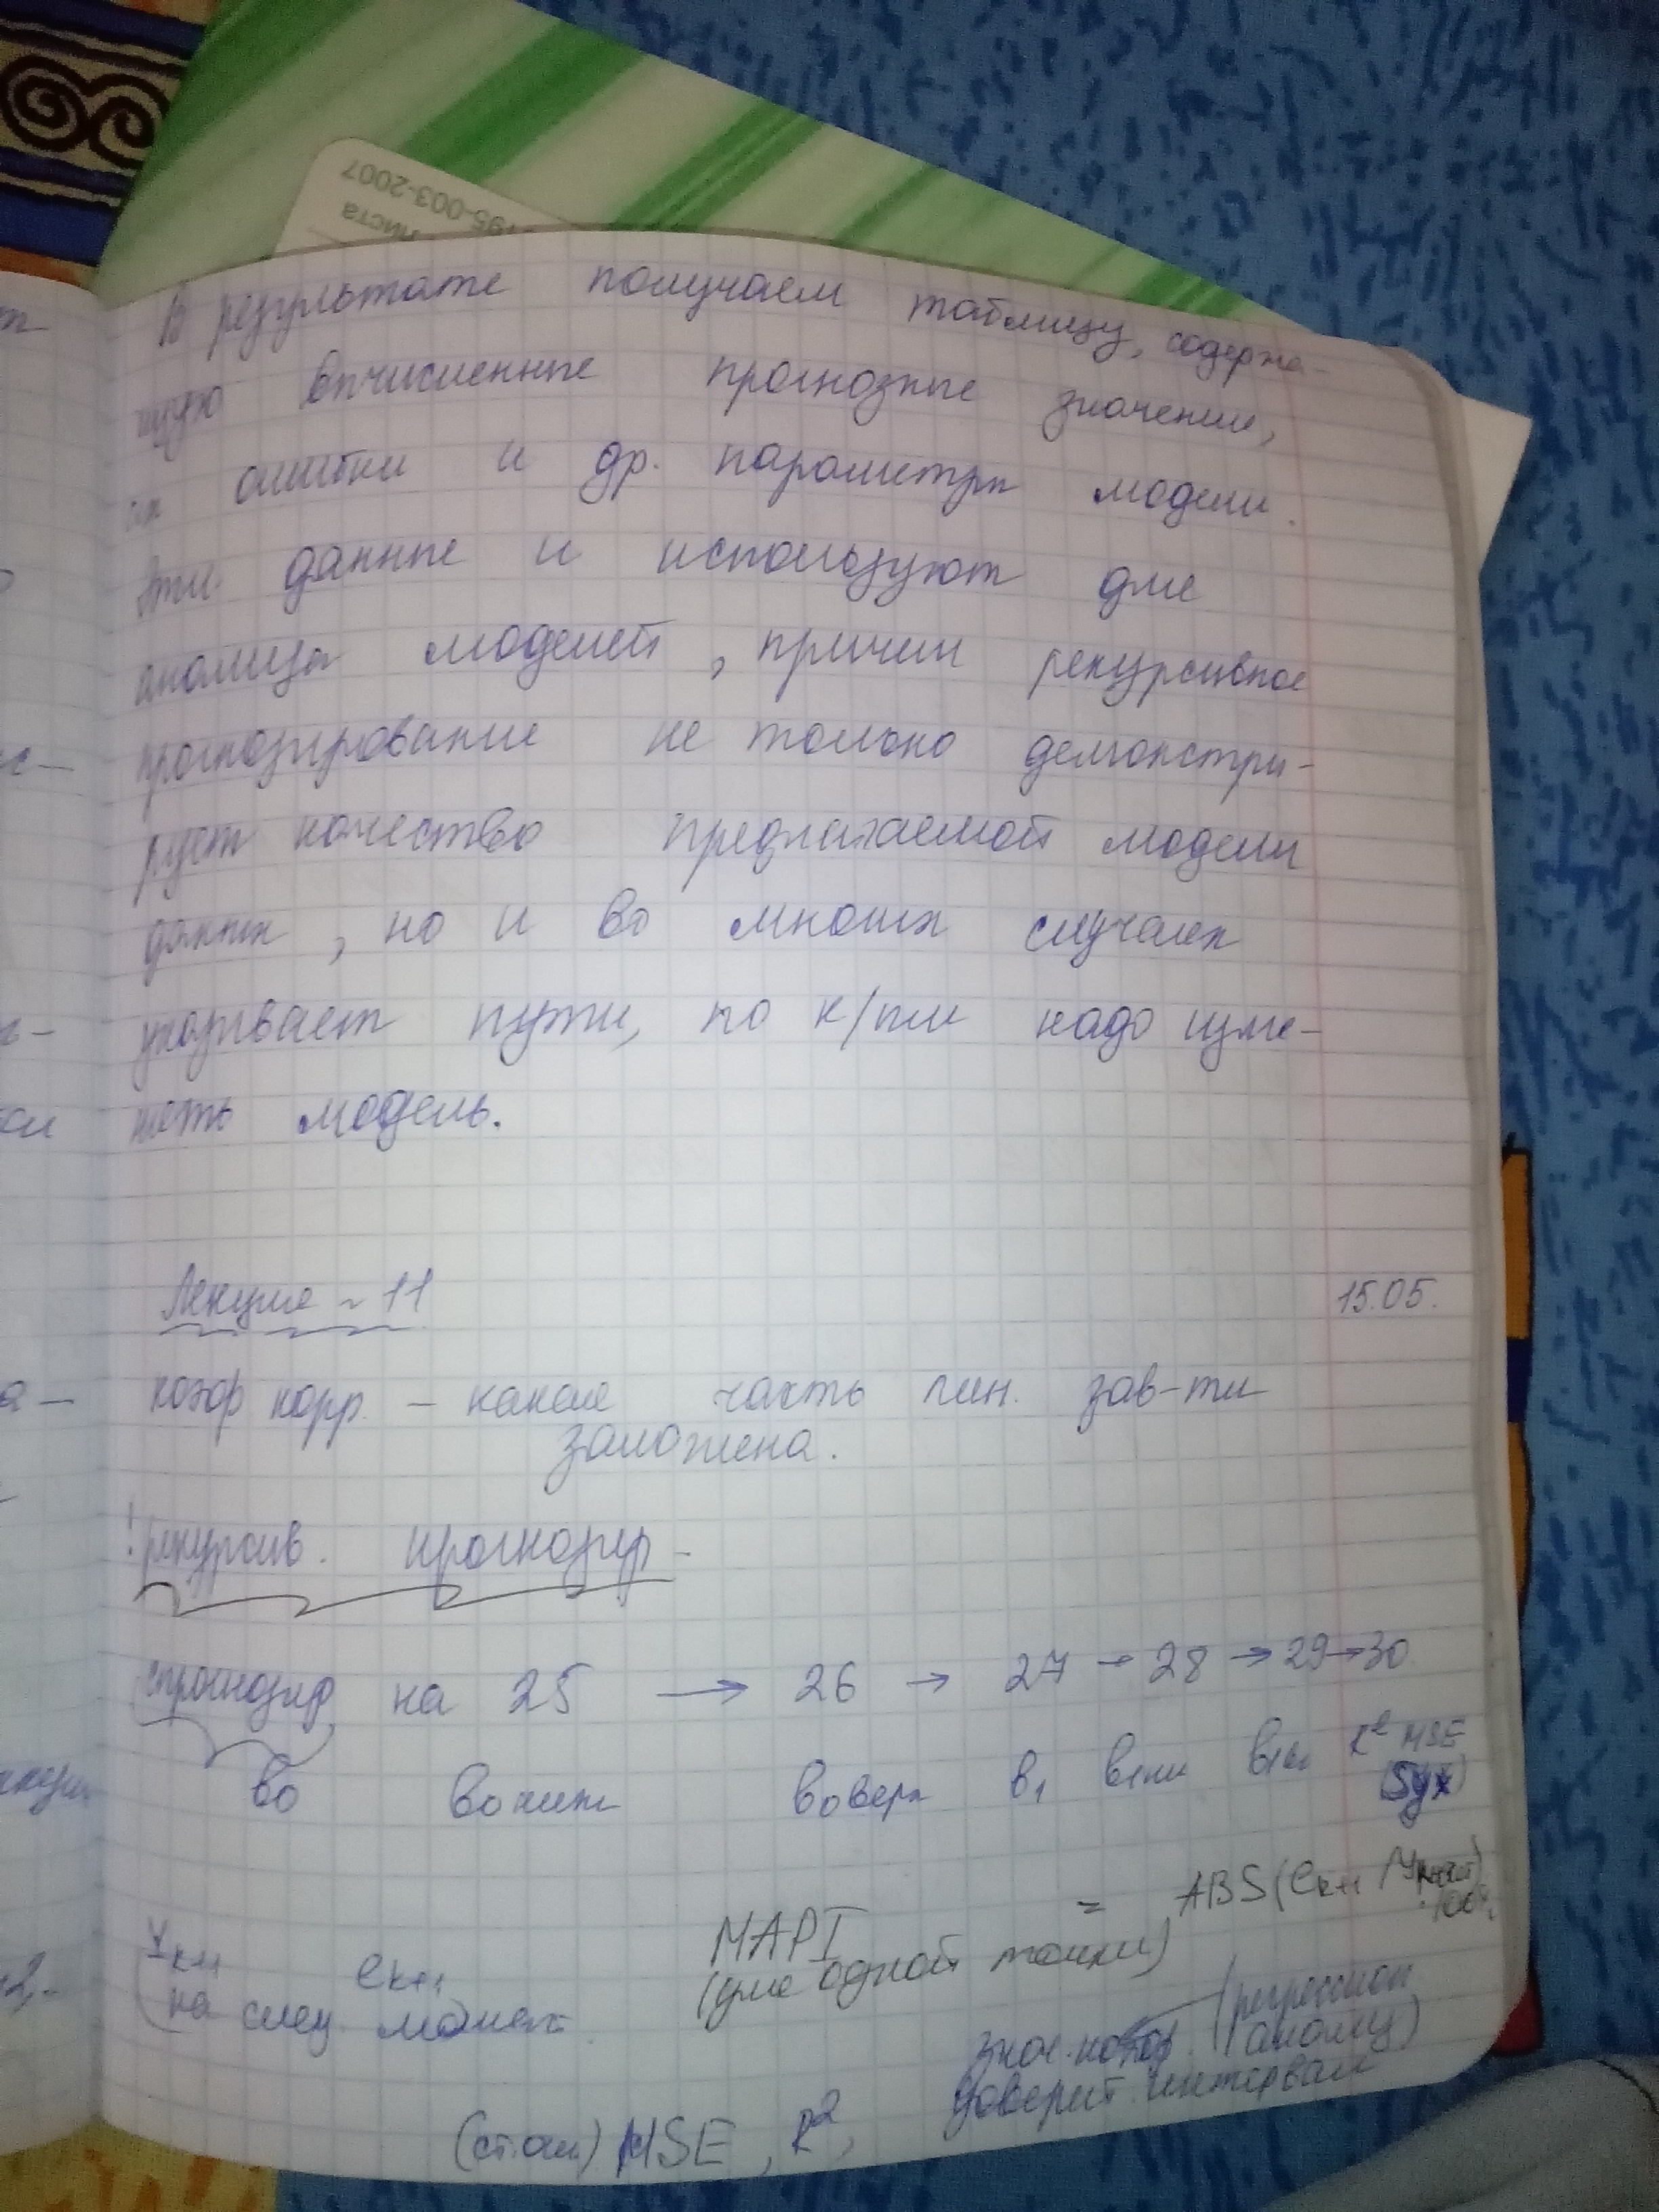 листа
195-003-2007
В результате получаем таблицу, содержа-
щую вычисленные прогнозные значения,
их ошибки и др. параметры модели.
Эти данные и используют для
анализа моделей, причем рекурсивное
прогнозирование не только демонстри-
рует качество предлагаемой модели
данных, но и во многих случаях
указывает пути, по к/пым надо изме-
нять модель.
Лекция ~ 11
15.05.
коэф корр. – какая часть лин. зав-ти
заложена.
! рекурсив. прогнозир –
спрогнозир на 25 → 26 → 27 → 28 → 29 → 30
b0 b0 нижн b0 верх b1 b1 нижн b1 R² MSE
(Syx)
Yк+1 eк+1 MAPI = ABS(eк+1 /
·100%
(для одной точки)
на след. момент.
знач. коэф. (регрессион
анализ)
доверит. интервал
(ст.ош) MSE, R²,